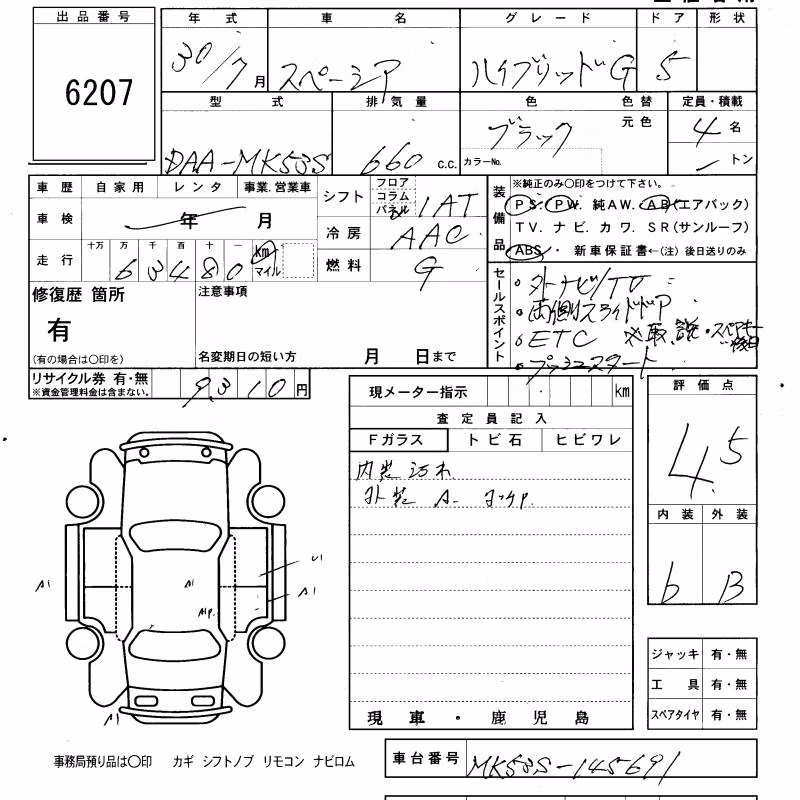 出品番号
6207
年式 車名 グレード ドア 形状
30/7月 スペーシア ハイブリッドG 5
型式 排気量 色 色替 定員・積載
DAA-MK53S 660 c.c. ブラック 元色 4名
カラーNo. トン
車歴 自家用 レンタ 事業.営業車
車検 年 月
走行 十万 万 千 百 十 一
63480 km マイル
シフト フロア コラム パネル IAT
冷房 AAC
燃料 G
装備品
※純正のみ○印をつけて下さい。
PS. PW. 純AW. AB(エアバック)
TV. ナビ. カワ. SR(サンルーフ)
ABS ・ 新車保証書←(注) 後日送りのみ
修復歴 箇所
有
(有の場合は○印を)
注意事項
名変期日の短い方 月 日まで
セールスポイント
・外ナビ/TV
・両側スライドドア
・ETC ※取説・スペアキー後日
・プッシュスタート
リサイクル券 有・無
※資金管理料金は含まない。
9,310円
現メーター指示 km
査定員記入
Fガラス トビ石 ヒビワレ
内装 汚れ
外装 A-
現車・鹿児島
評価点
4.5
内装 外装
b B
A1
U1
A1
A1
A1
ジャッキ 有・無
工具 有・無
スペアタイヤ 有・無
事務局預り品は○印 カギ シフトノブ リモコン ナビロム
車台番号 MK53S-145691